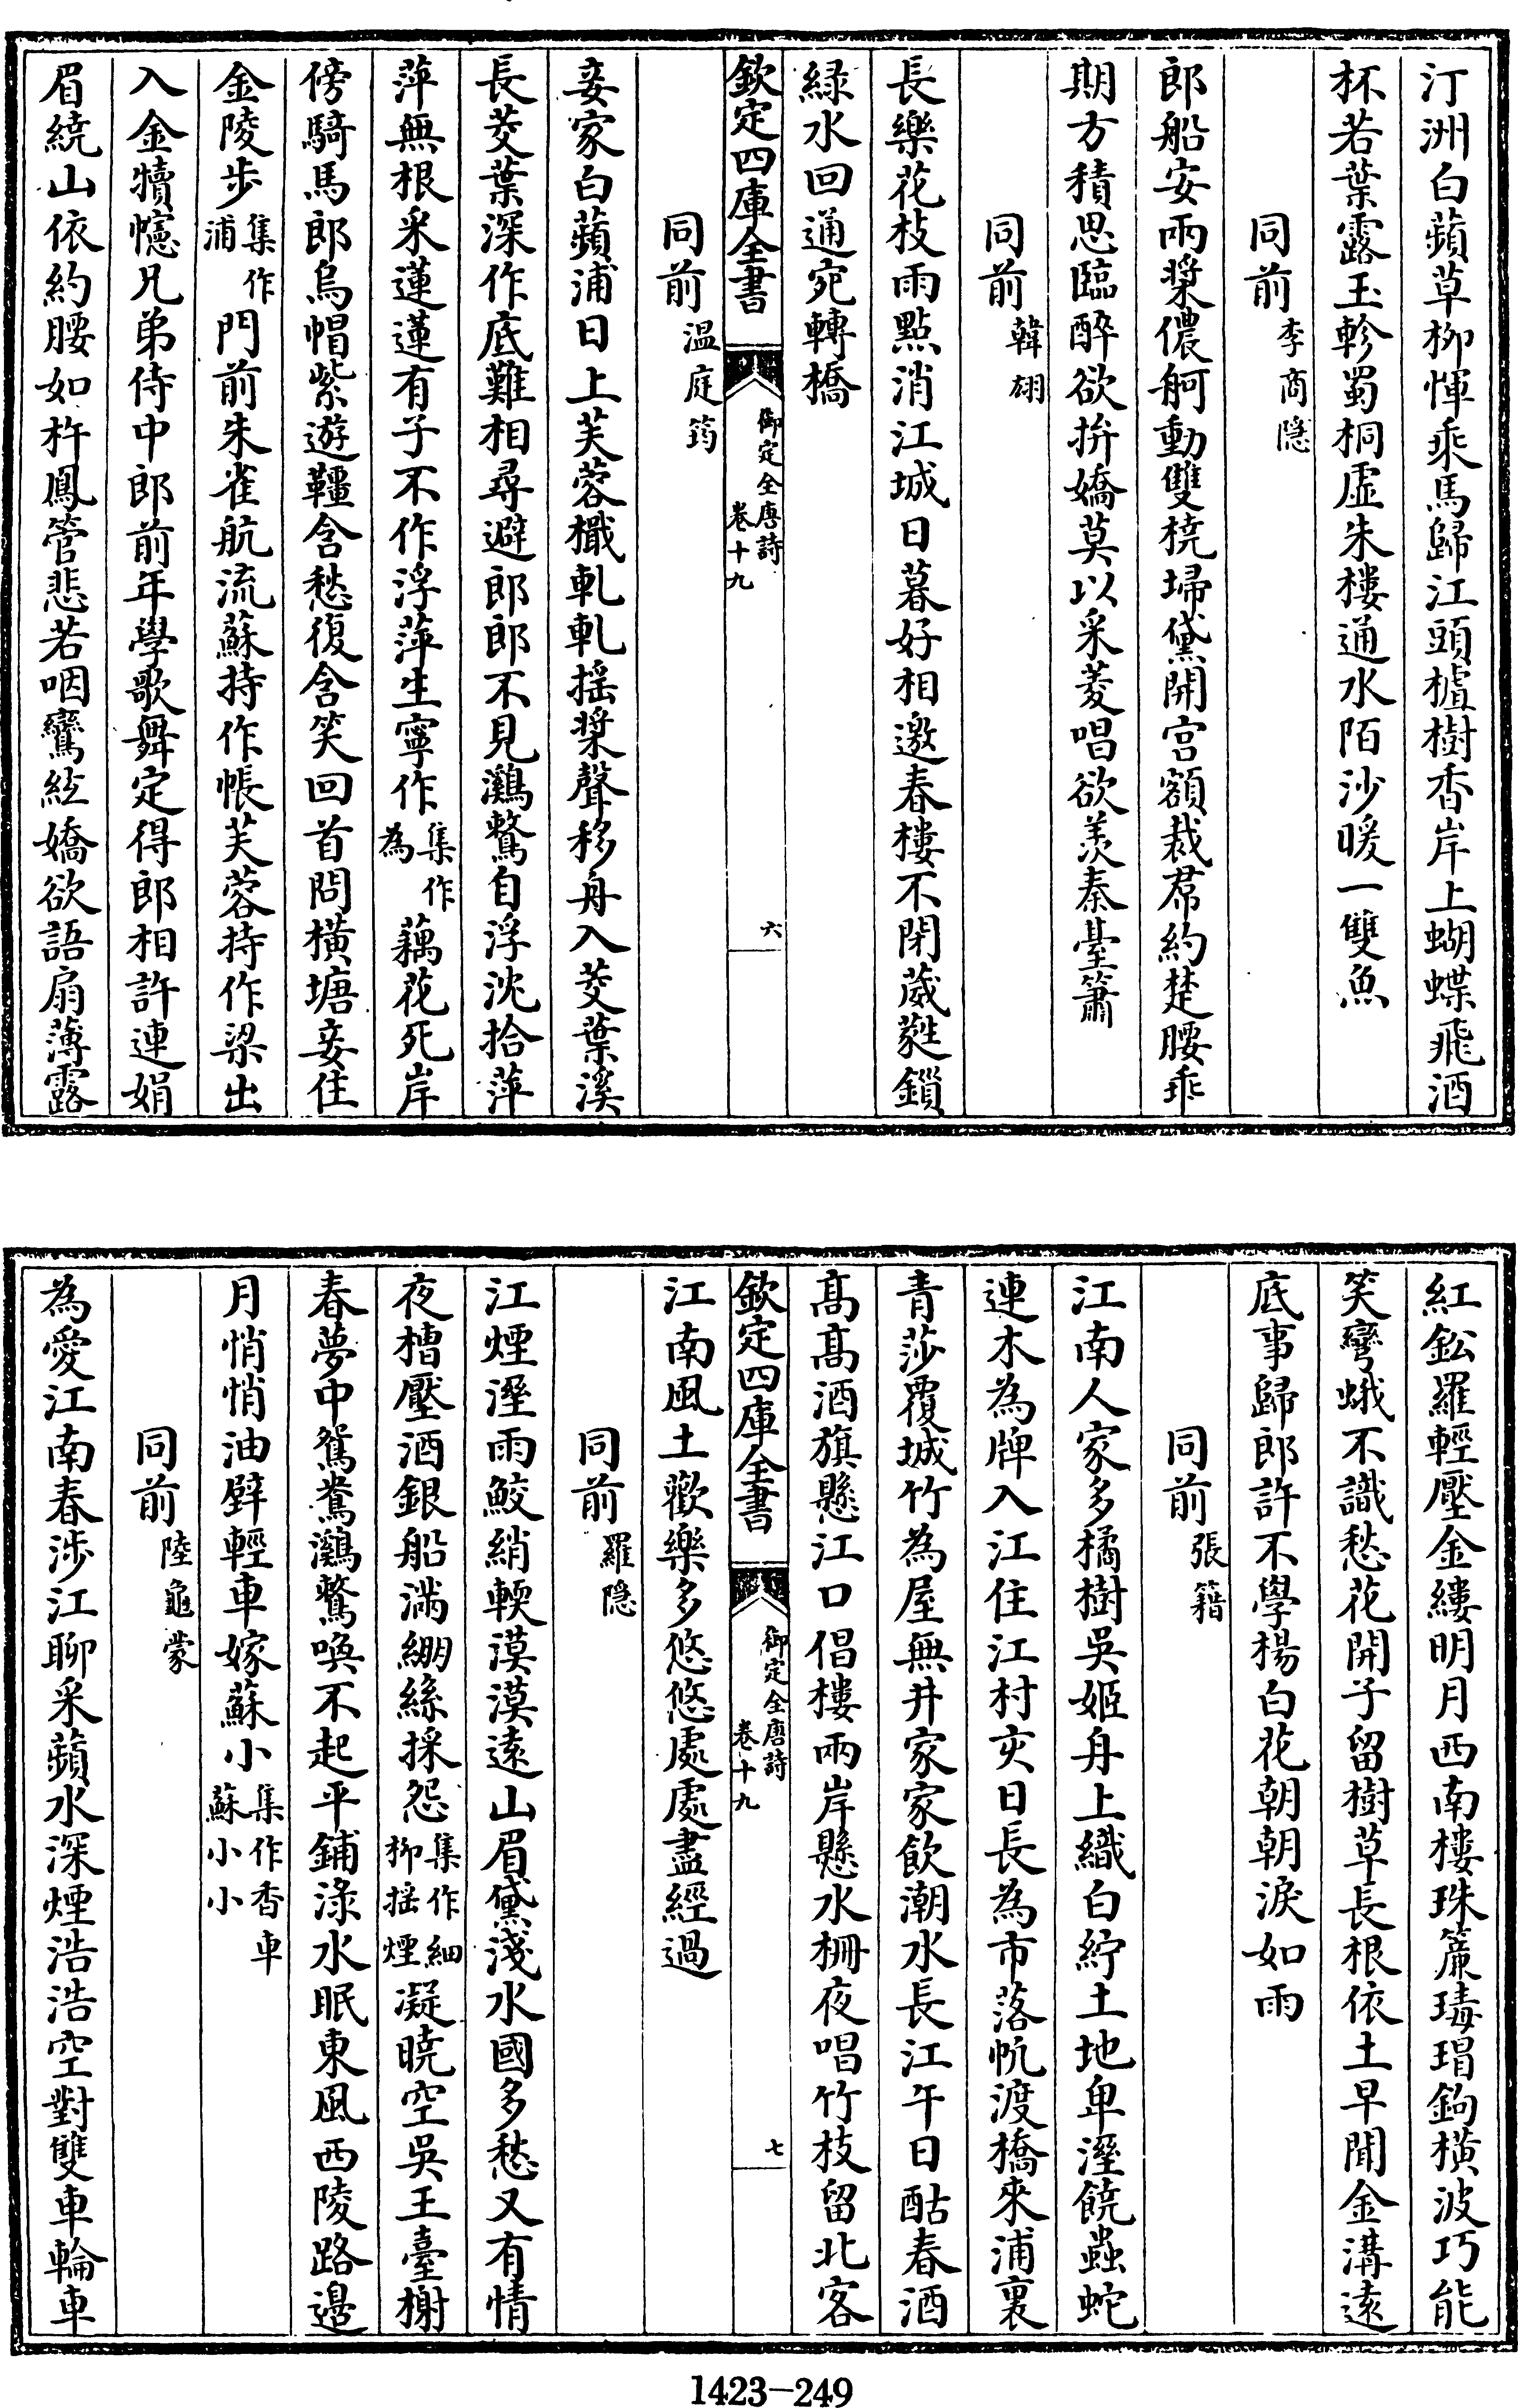 汀洲白蘋草柳惲乘馬歸江頭樝樹香岸上蝴蝶飛酒
杯若葉露玉軫蜀桐虛朱樓通水陌沙暖一雙魚
同前李商隱
郎船安兩槳儂舸動雙橈埽黛開宮額裁帬約楚腰乖
期方積思臨醉欲拚嬌莫以采菱唱欲羨秦臺簫
同前韓翃
長樂花枝雨點消江城日暮好相邀春樓不閉葳蕤鎖
綠水回通宛轉橋
欽定四庫全書
御定全唐詩
卷十九
六
同前溫庭筠
妾家白蘋浦日上芙蓉檝軋軋搖槳聲移舟入茭葉溪
長茭葉深作底難相尋避郎郎不見鸂鶒自浮沈拾萍
萍無根采蓮蓮有子不作浮萍生寧作集作為藕花死岸
傍騎馬郎烏帽紫遊韁含愁復含笑回首問橫塘妾住
金陵步集作浦門前朱雀航流蘇持作帳芙蓉持作梁出
入金犢幰兄弟侍中郎前年學歌舞定得郎相許連娟
眉繞山依約腰如杵鳳管悲若咽鸞絃嬌欲語扇薄露
紅鈆羅輕壓金縷明月西南樓珠簾瑇瑁鉤橫波巧能
笑彎蛾不識愁花開子留樹草長根依土早聞金溝遠
底事歸郎許不學楊白花朝朝淚如雨
同前張籍
江南人家多橘樹吳姬舟上織白紵土地卑溼饒蟲蛇
連木為牌入江住江村亥日長為市落帆渡橋來浦裏
青莎覆城竹為屋無井家家飲潮水長江午日酤春酒
高高酒旗懸江口倡樓兩岸懸水柵夜唱竹枝留北客
欽定四庫全書
御定全唐詩
卷十九
七
江南風土歡樂多悠悠處處盡經過
同前羅隱
江煙溼雨鮫綃輭漠漠遠山眉黛淺水國多愁又有情
夜槽壓酒銀船滿繃絲採怨集作細柳搖煙凝曉空吳王臺榭
春夢中鴛鴦鸂鶒喚不起平鋪淥水眠東風西陵路邊
月悄悄油壁輕車嫁蘇小集作香車蘇小小
同前陸龜蒙
為愛江南春涉江聊采蘋水深煙浩浩空對雙車輪車
1423-249